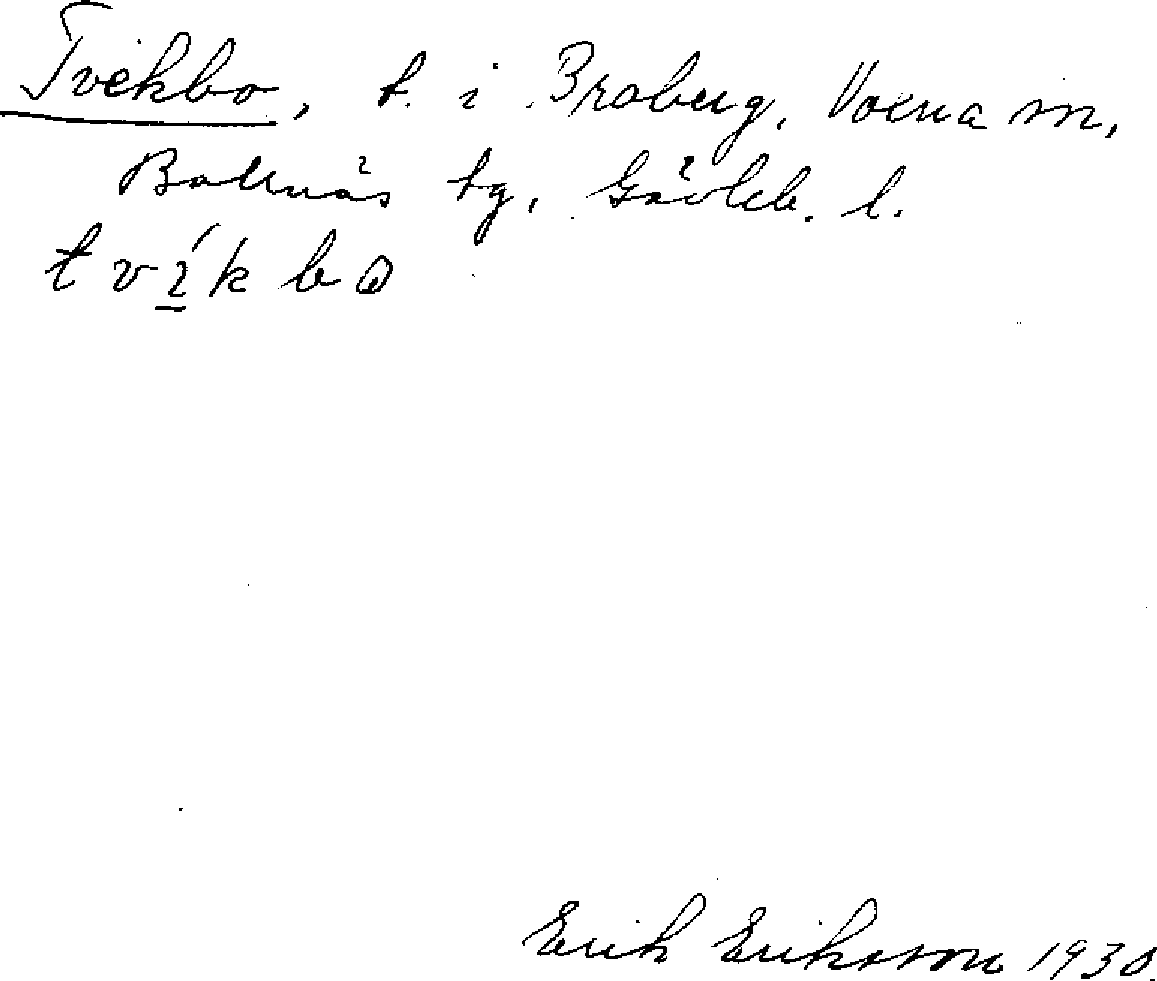 Tvekbo, t. i Braberg, Voxna sn,
Bollnäs tg, Gävleb. l.
tví̲k bω
Erik Eriksson 1930.